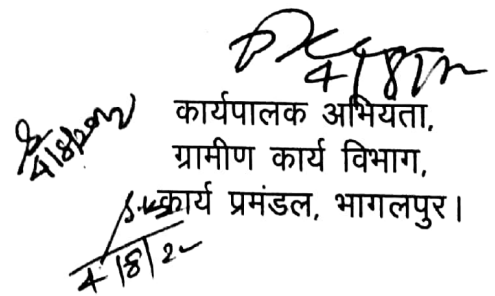 4/8/2022
कार्यपालक अभियता,
ग्रामीण कार्य विभाग,
कार्य प्रमंडल, भागलपुर।
4/8/2